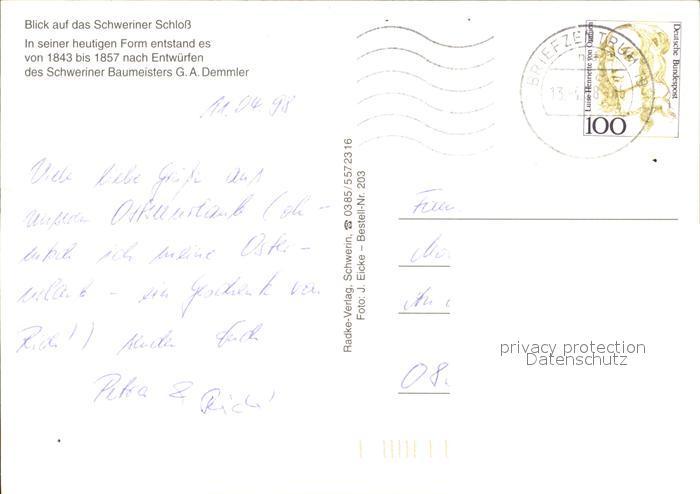 Blick auf das Schweriner Schloß
In seiner heutigen Form entstand es
von 1843 bis 1857 nach Entwürfen
des Schweriner Baumeisters G. A. Demmler
11.04.98
Viele liebe Grüße aus
unserem Ostseeurlaub (oh-
ich meine Oster-
urlaub - ein Geschenk von
) senden Euch
Petra &
Radke-Verlag, Schwerin, ☎ 0385/5572316
Foto: J. Eicke – Bestell-Nr. 203
BRIEFZENTRUM
Deutsche Bundespost
Luise Henriette von Oranien
100
Fam.
privacy protection
Datenschutz